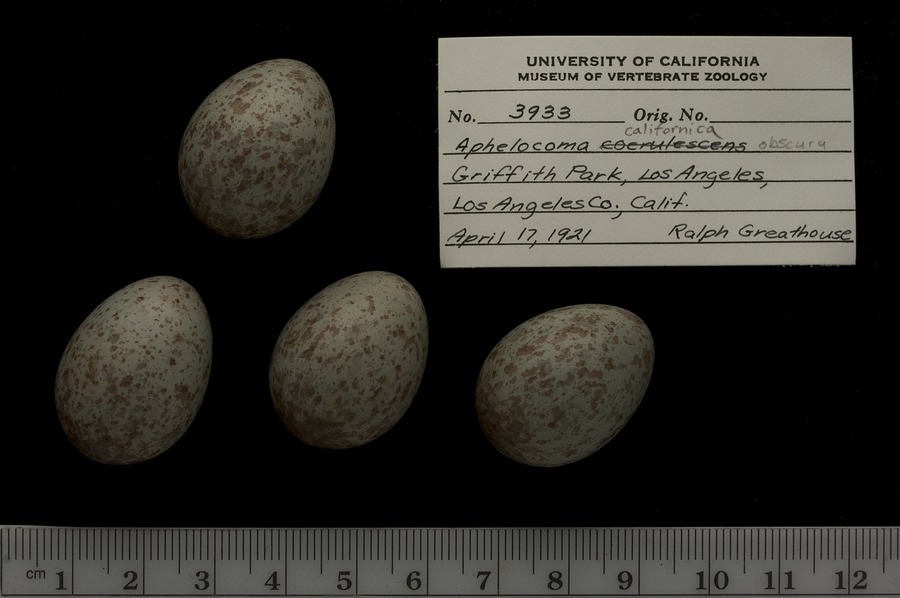 UNIVERSITY OF CALIFORNIA
MUSEUM OF VERTEBRATE ZOOLOGY
No. 3933 Orig. No.
californica
Aphelocoma coerulescens obscura
Griffith Park, Los Angeles,
Los Angeles Co., Calif.
April 17, 1921 Ralph Greathouse
cm 1 2 3 4 5 6 7 8 9 10 11 12